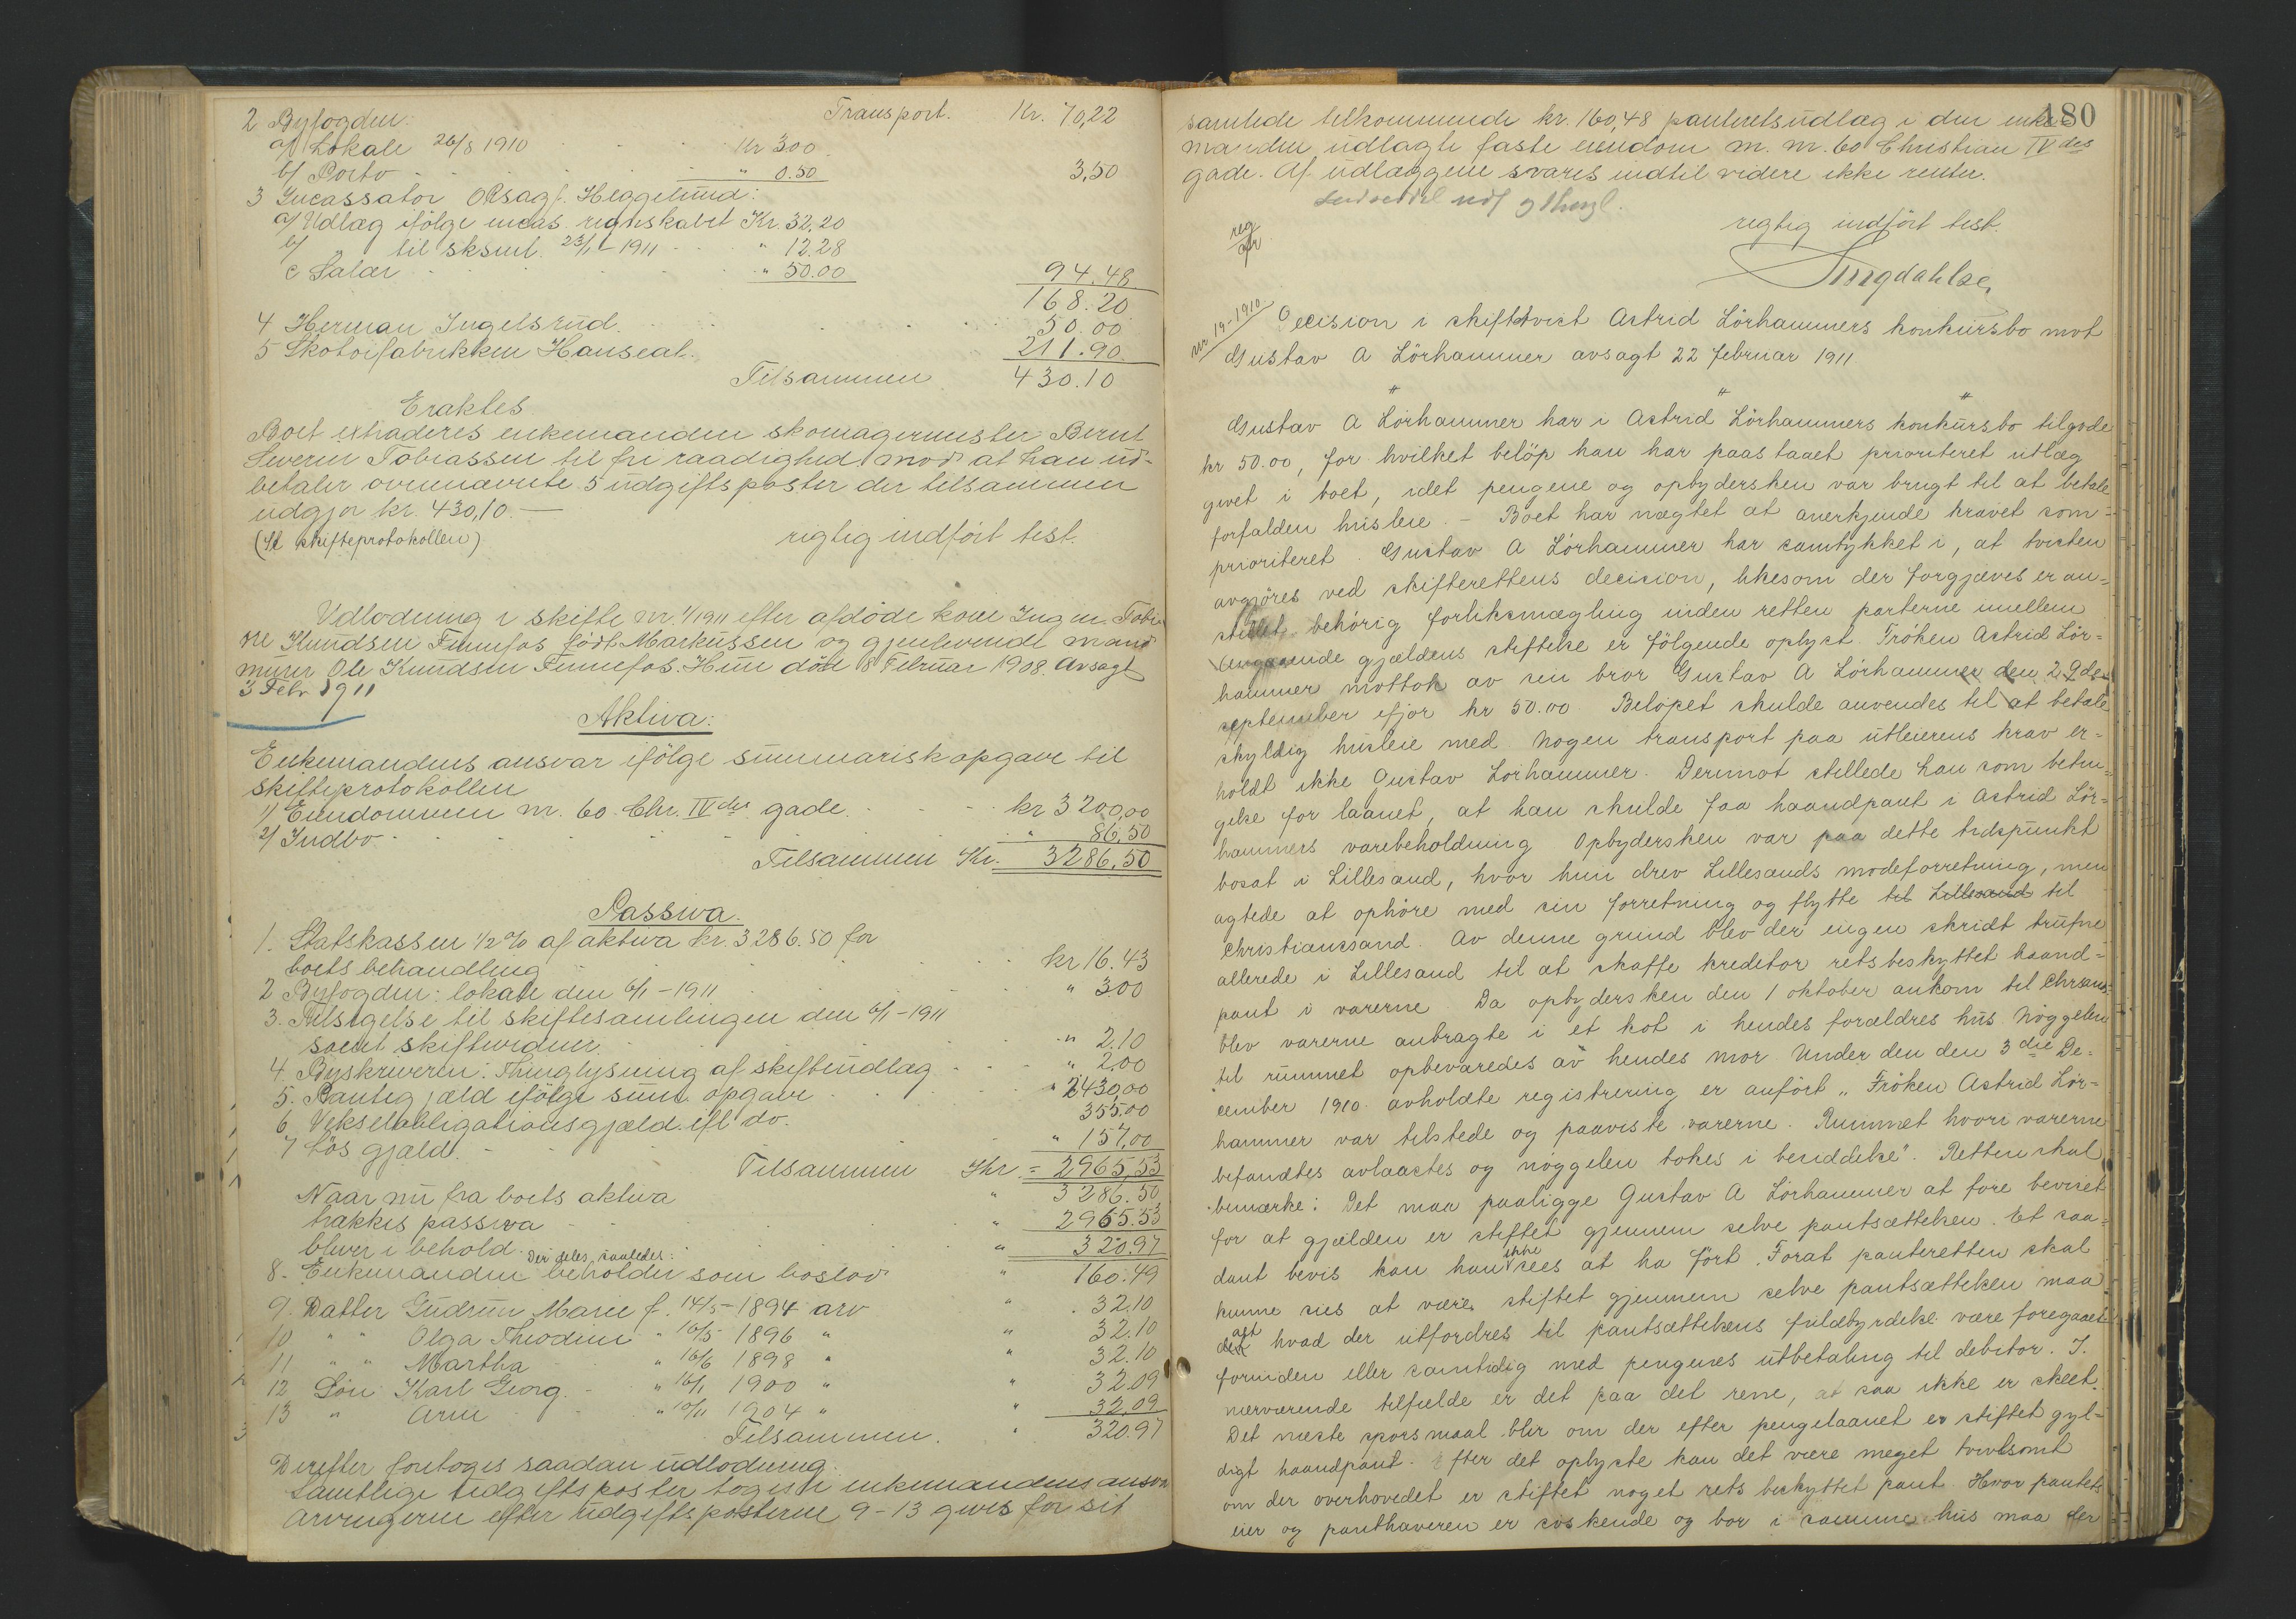 2 Byfogden: Transport. Kr. 70,22
a/ Lokale 26/8 1910 Kr 3.00
b/ Porto " 0.50 3,50
3 Incassator O R sagf. Heggelund:
a/ Udlæg ifölge incas. regnskabet Kr. 32,20
b/ " til sksml. 23/1-1911 " 12.28
c Salær " 50.00 94.48
168.20
4 Herman Ingelsrud. 50.00
5 Skotöifabrikken Hanseat. 211.90
Tilsammen 430.10
Eraktes
Boet extraderes enkemanden skomagermester Bernt
Severin Tobiassen til fri raadighed mod at han ud-
betaler ovennævnte 5 udgiftsposter der tilsammen
udgjör kr. 430,10.
(Se skifteprotokollen) rigtig indfört test.
Udlodning i skifte nr. 1/1911 efter afdöde kone Ing m. Tobi
ne Knudsen Finnefos födt Markussen og gjenlevende mand
murer Ole Knudsen Finnefos. Hun död 8 Februar 1908. Avsagt
3 Febr. 1911
Aktiva:
Enkemandens ansvar ifölge summarisk opgave til
skifteprotokollen
1) Eiendommen nr. 60. Chr. IVdes gade. kr 3200,00
2/ Indbo " 86,50
Tilsammen Kr. 3286,50
Passiva.
1. Statskassen 1/2 % af aktiva kr. 3286.50 for
boets behandling kr 16.43
2 Byfogden: lokale den 6/1-1911 " 3.00
3. Tilsigelse til skiftesamlingen den 6/1-1911
samt skiftevidner. " 2.10
4. Byskriveren: Thinglysning af skifteudlæg " 2,00
5. Pantegjæld ifölge sum. opgave " 2430,00
6 Vekselobligationsgjæld. ifl do. 355.00
7 Lös gjæld. " 157,00
Tilsammen Kr. = 2965,53
Naar nu fra boets aktiva " 3286.50
trækkes passiva " 2965.53
bliver i behold. Der deles saaledes: " 320.97
8. Enkemanden beholder som boslod " 160.49
9. Datter Gudrun Marie f. 14/5-1894 arv " 32.10
10 " " Olga Theodine " 16/5 1896 " " 32.10
11 " " Martha " 16/6 1898 " " 32.10
12 Sön Karl Georg. " 16/1 1900 " " 32.09
13 " Arne " 10/11 1904 " " 32.09
Tilsammen. " 320.97
Derefter foretoges saadan udlodning:
Samtlige udgiftsposter toges i enkemandens ansvar
Arvingerne efter udgiftsposterne 9-13 gives for sit
180
samlede tilkommende kr. 160,48 panteretsudlæg i den enke-
manden udlagte faste eiendom m. nr. 60 Christian IVdes
gade. Af udlæggene svares indtil videre ikke renter.
reg rigtig indfört test.
Nr 19-1910 Decision i skiftetvist Astrid Lörhammers konkursbo mot
Gustav A Lörhammer avsagt 22 februar 1911
" " "
Gustav A Lörhammer har i Astrid Lörhammers konkursbo tilgode
kr 50.00, for hvilket belöp han har paastaaet prioriteret utlæg
givet i boet, idet pengene og opbydersken var brugt til at betale
forfalden husleie. - Boet har nægtet at anerkjende kravet som
prioriteret. Gustav A Lörhammer har samtykket i, at tvisten
avgjöres ved skifterettens decision, likesom der forgjæves er an-
stillet behörig forliksmægling inden retten parterne imellem
Angaaende gjældens stiftelse er fölgende oplyst. Fröken Astrid Lör-
hammer mottok av sin bror Gustav A Lörhammer den 29de
september ifjor kr 50.00. Belöpet skulde anvendes til at betale
skyldig husleie med Nogen transport paa utleierens krav er-
holdt ikke Gustav Lörhammer. Derimot stillede han som betin-
gelse for laanet, at han skulde faa haandpant i Astrid Lör-
hammers varebeholdning Opbydersken var paa dette tidspunkt
bosat i Lillesand, hvor hun drev Lillesands modeforretning, men
agtede at ophöre med sin forretning og flytte til Lillesand til
Christianssand. Av denne grund blev der ingen skridt trufne
allerede i Lillesand til at skaffe kreditor retsbeskyttet haand-
pant i varerne Da opbydersken den 1 oktober ankom til Chrsans
blev varerne anbragte i et kot i hendes forældres hus Nøggelen
til rummet opbevaredes av hendes mor Under den den 3die De-
cember 1910 avholdte registrering er anfört „Fröken Astrid Lör-
hammer var tilstede og paaviste varerne. Rummet hvori varerne
befandtes avlaastes og nöggelen tokes i besiddelse". Retten skal
bemærke: Det maa paaligge Gustav A Lörhammer at före beviset
for at gjælden er stiftet gjennem selve pantsættelsen. Et saa-
dant bevis kan han ikke sees at ha fört. Forat panteretten skal
kunne sies at være stiftet gjennem selve pantsættelsen maa
alt hvad der utfordres til pantsættelsens fuldbyrdelse være foregaaet
forinden eller samtidig med pengenes utbetaling til debitor. I
nærværende tilfælde er det paa det rene, at saa ikke er skeet.
Det næste spörsmaal blir om der efter pengelaanet er stiftet gyl-
digt haandpant. Efter det oplyste kan det være meget tvilsomt
om der overhovedet er stiftet noget rets beskyttet pant Hvor pantets
eier og panthaveren er söskende og bor i samme hus maa der